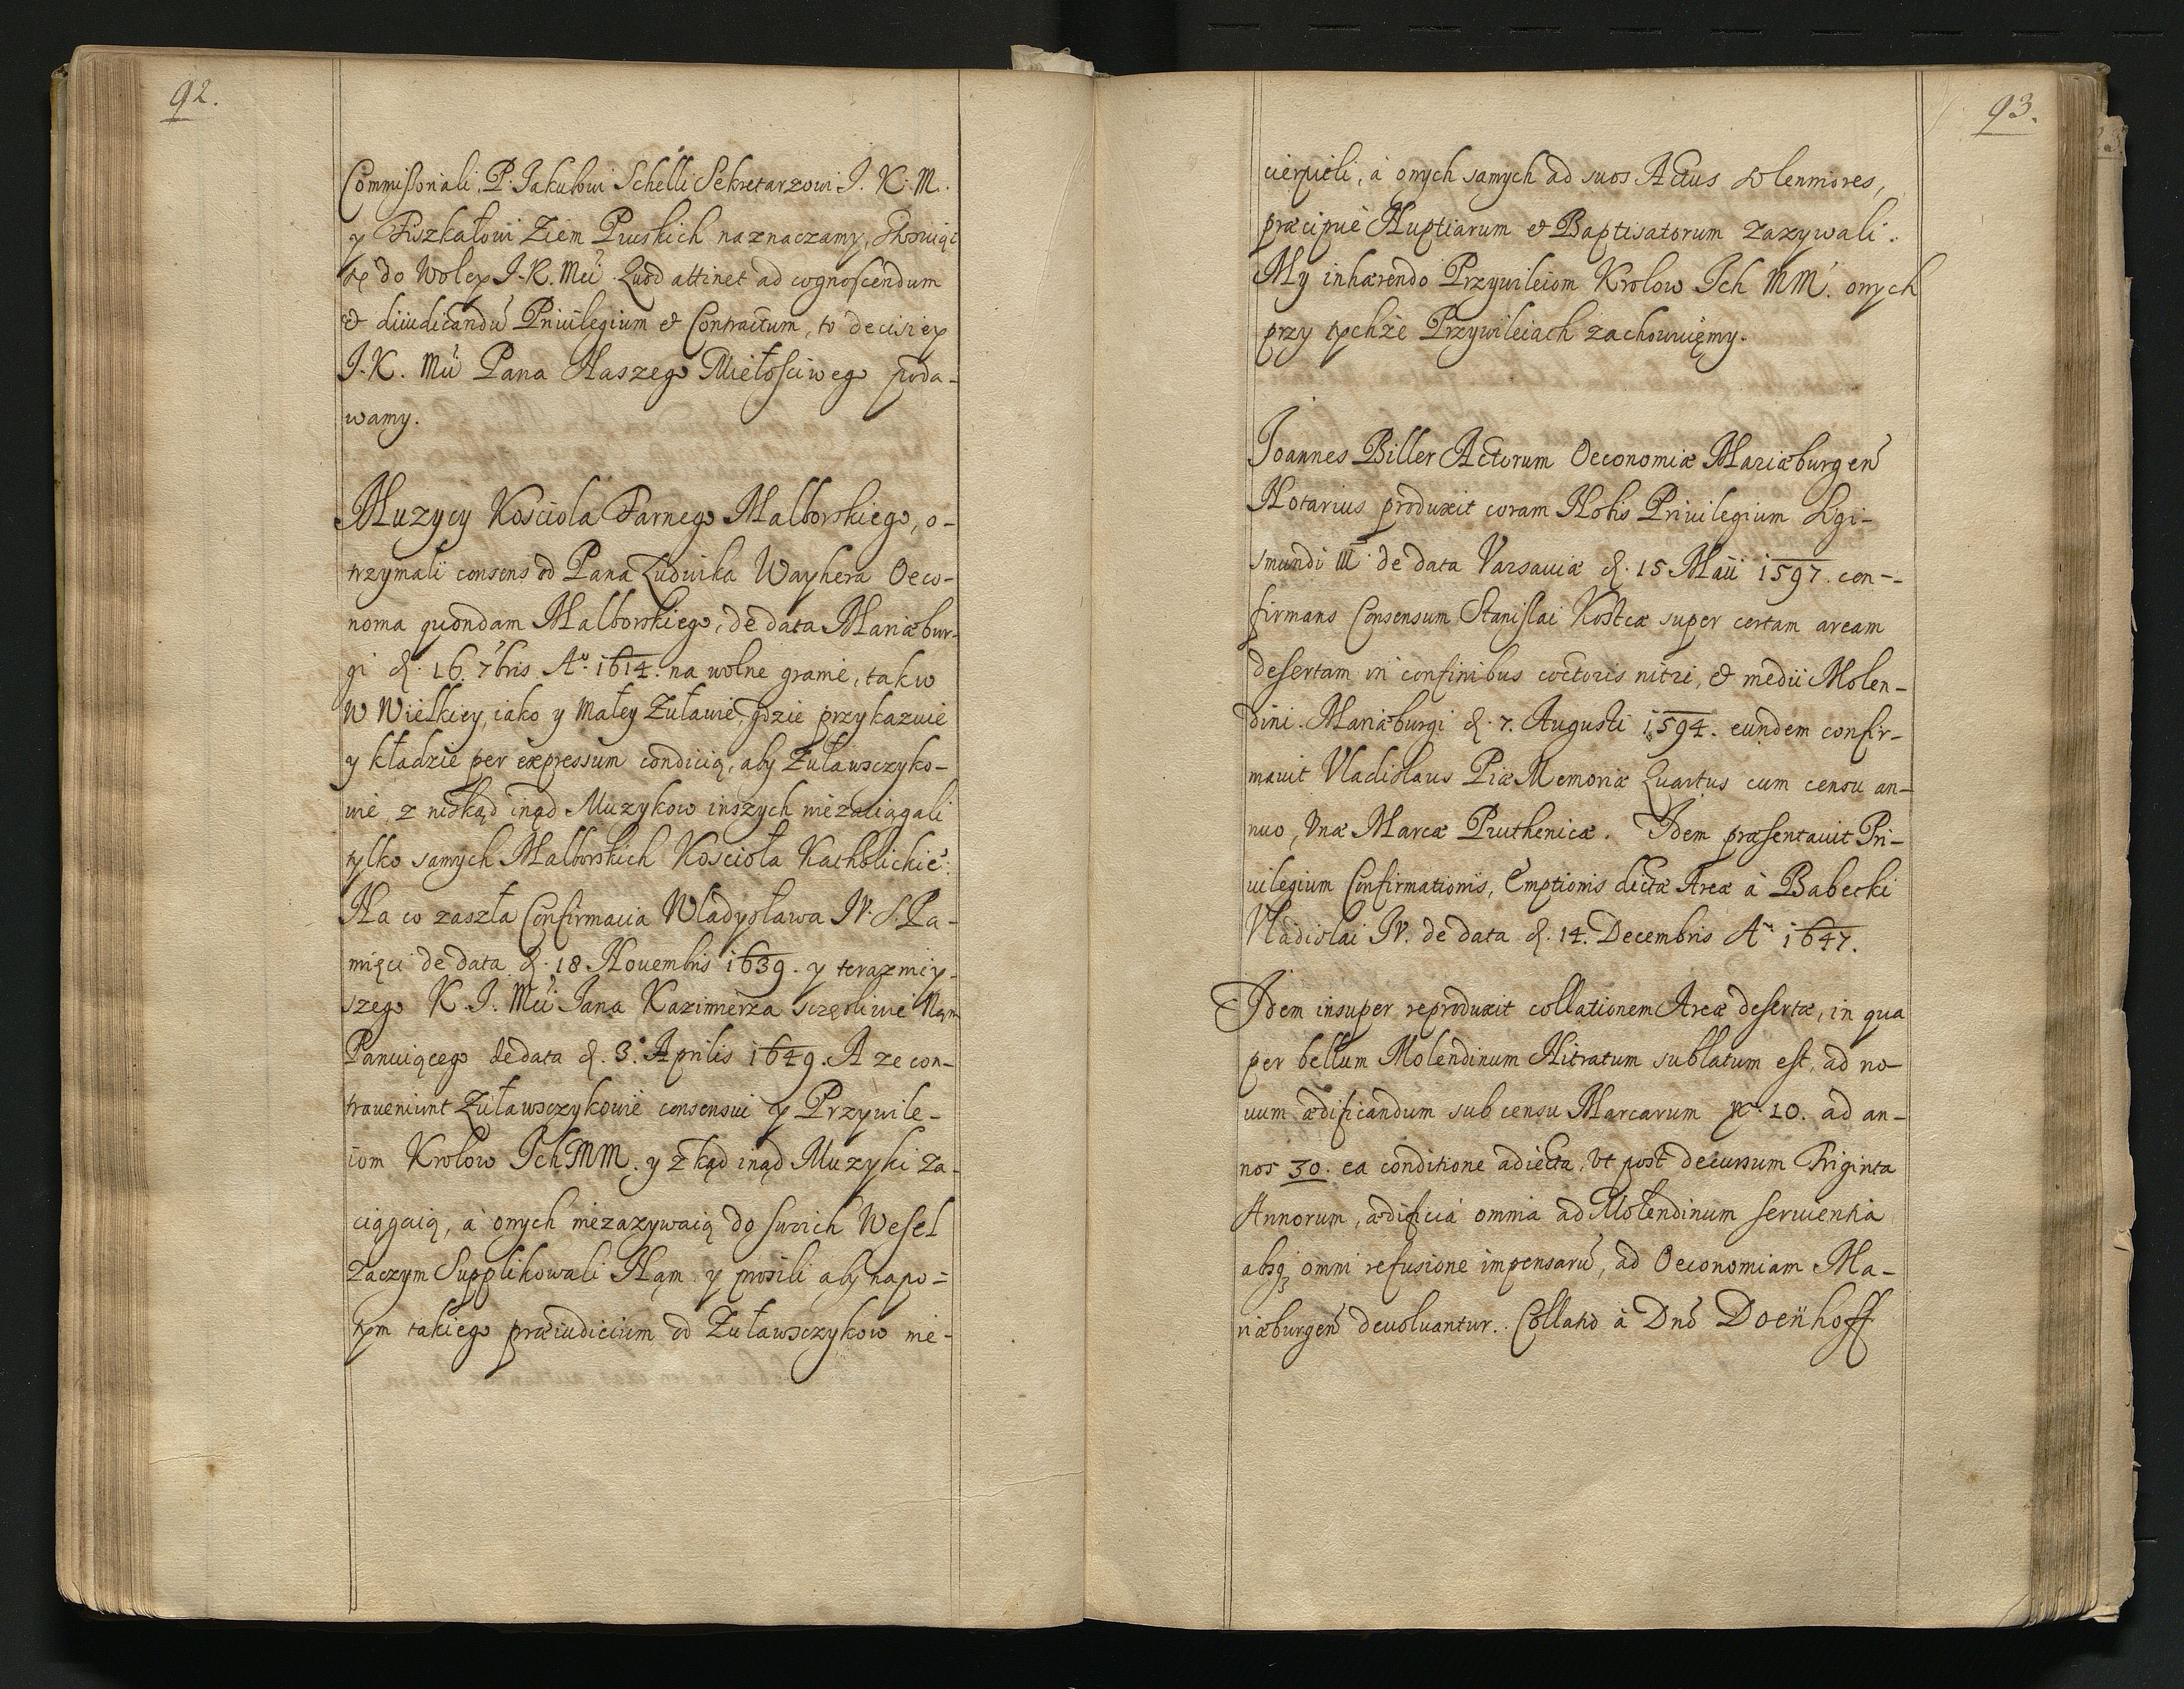 92.
Commissoriali, P. Jakubowi Schelli Sekretarzowi J. K. M.
y Fiszkałowi Ziem Pruskich naznaczamy, stosuiąc
się do Woley J. K. Mci. Quod attinet ad cognoscendum
& diiudicandũ Priuilegium & Contractum, to decisiey
J. K. Mci Pana Naszego Miełościwego poda-
wamy.
Muzycy Kosciola Farnego Malborskiego, o-
trzymali consens od Pana Ludwika Wayhera Oeco-
noma quondam Malborskiego, de data Mariæbur-
gi d. 16. 7bris Aº. 1614. na wolne granie, tak w
W Wielkiey, iako y Małey Zuławie, gdzie przykazuie
y kładzie per expressum condicią, aby Zuławczyko-
wie z niskąd inąd Muzykow inszych niezaciągali
tylko samych Malborskich Koscioła Katholickie:
Na co zaszła Confirmacia Wladysława IV. S. Pa-
mięci de data d. 18 Nouembris 1639. y terazniey-
szego K. J. Mci Jana Kazimierza szczęsliwie Nam
Panuiącego de data d. 3. Aprilis 1649. A ze con-
traueniunt Zuławczykowie consensui y Przywile-
iom Krolow Ich MM. y zkąd inąd Muzyki za-
ciągaią, a onych niezazywaią do swoich Wesel
Zaczym Supplikowali Nam y prosili aby napo-
tym takiego præiudicium od Zuławczykow nie-
93.
cierpieli, a onych samych ad suos Actus solenniores,
præcipuè Nuptiarum & Baptisatorum zazywali.
My inhærendo Przywileiom Krolow Ich MM. onych
przy tychże Przywileiach zachowuięmy.
Joannes Biller Actorum Oeconomiæ Mariæburgen̄
Notarius produxit coram Nobis Priuilegium Sigi-
smundi III de data Varsauiæ d. 15 Maii 1597. con-
firmans Consensum Stanislai Kostcæ super certam aream
desertam in confinibus coctoris nitri, & medii Molen-
dini. Mariæburgi d. 7. Augusti 1594. eundem confir-
mauit Vladislaus Piæ Memoriæ Quartus cum censu an-
nuo, Vnæ Marcæ Pruthenicæ. Idem præsentauit Pri-
uilegium Confirmationis, Emptionis dictæ Areæ à Babecki
Vladislai IV. de data d. 14. Decembris Aº. 1647.
Idem insuper reproduxit collationem Areæ desertæ, in qua
per bellum Molendinum Nitratum sublatum est, ad no-
uum ædificandum sub censu Marcarum 10. ad an-
nos 30. ea conditione adiecta, Vt post decursum Triginta
Annorum, ædificia omnia ad Molendinum seruientia
absq3 omni refusione impensarũ, ad Oeconomiam Ma-
riæburgen̄ deuoluantur. Collatio à Dnõ Doenhoff